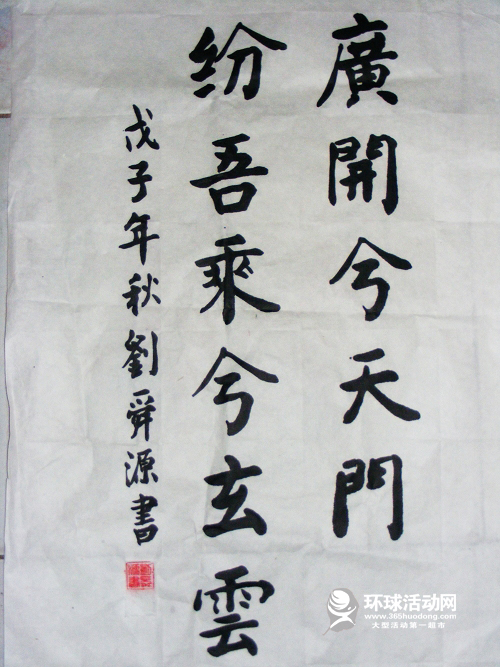 廣開兮天門
纷吾乘兮玄雲
戊子年秋劉舜源書
环球活动网
www.365huodong.com
大型活动第一超市